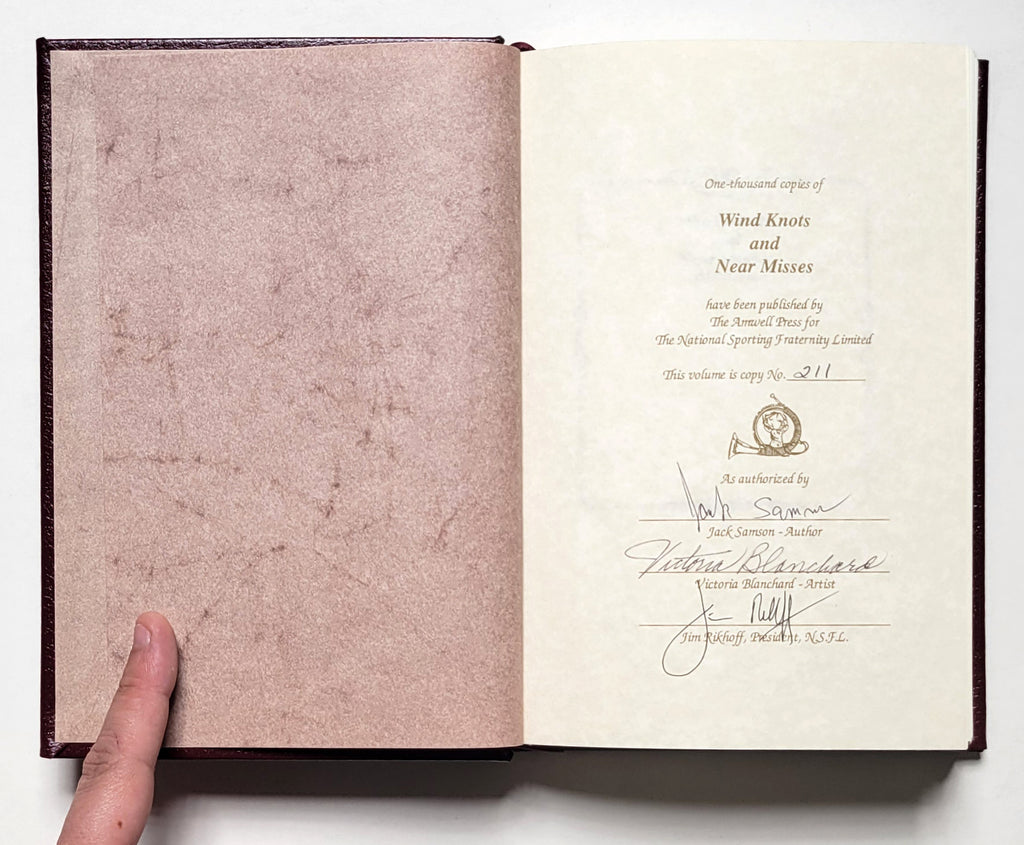 One-thousand copies of
Wind Knots
and
Near Misses
have been published by
The Amwell Press for
The National Sporting Fraternity Limited
This volume is copy No. 211
As authorized by
Jack Samson
Jack Samson - Author
Victoria Blanchard
Victoria Blanchard - Artist
Jim Rikhoff
Jim Rikhoff, President, N.S.F.L.